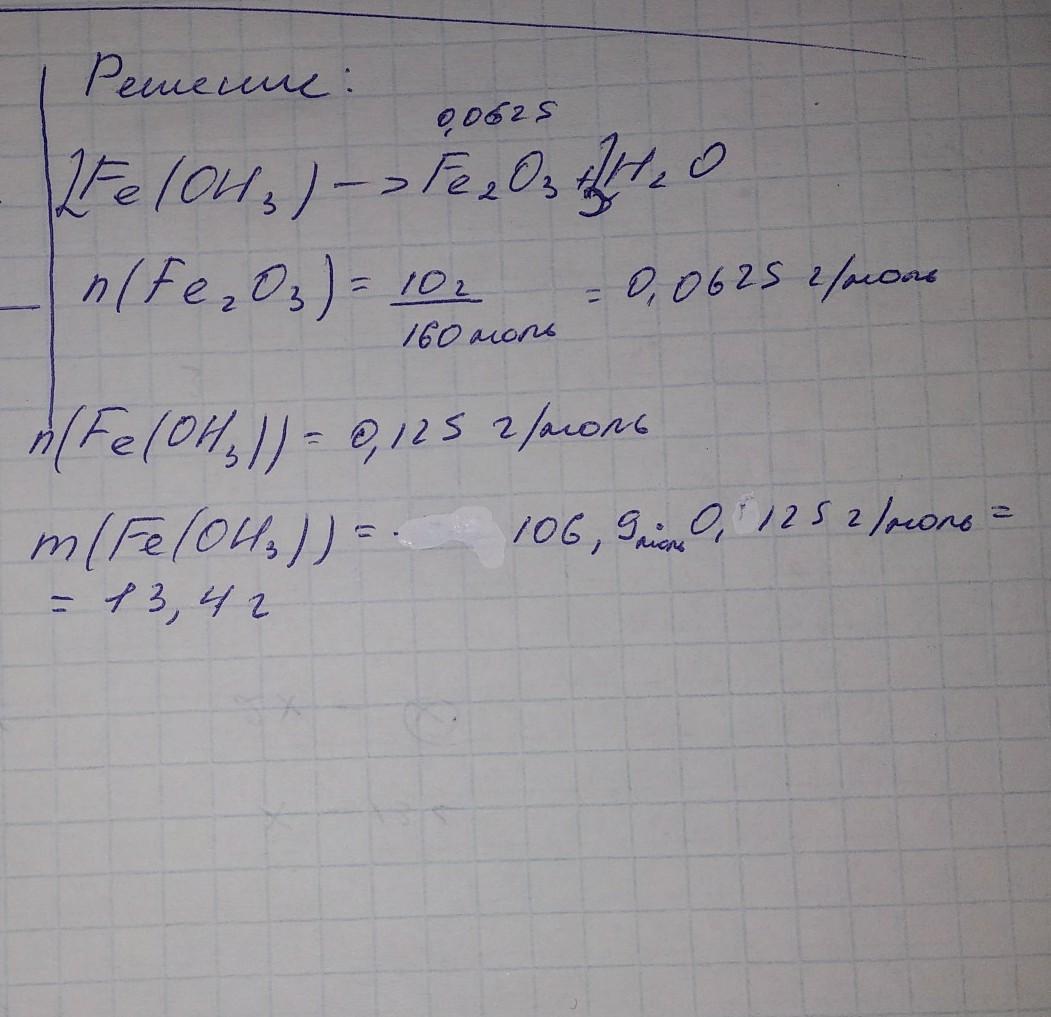 Решение:
0,0625
2Fe(OH₃) -> Fe₂O₃ + 3H₂O
n(Fe₂O₃) = 10г / 160 моль = 0,0625 г/моль
n(Fe(OH₃)) = 0,125 г/моль
m(Fe(OH₃)) = 106,9 моль · 0,125 г/моль =
= 13,4 г